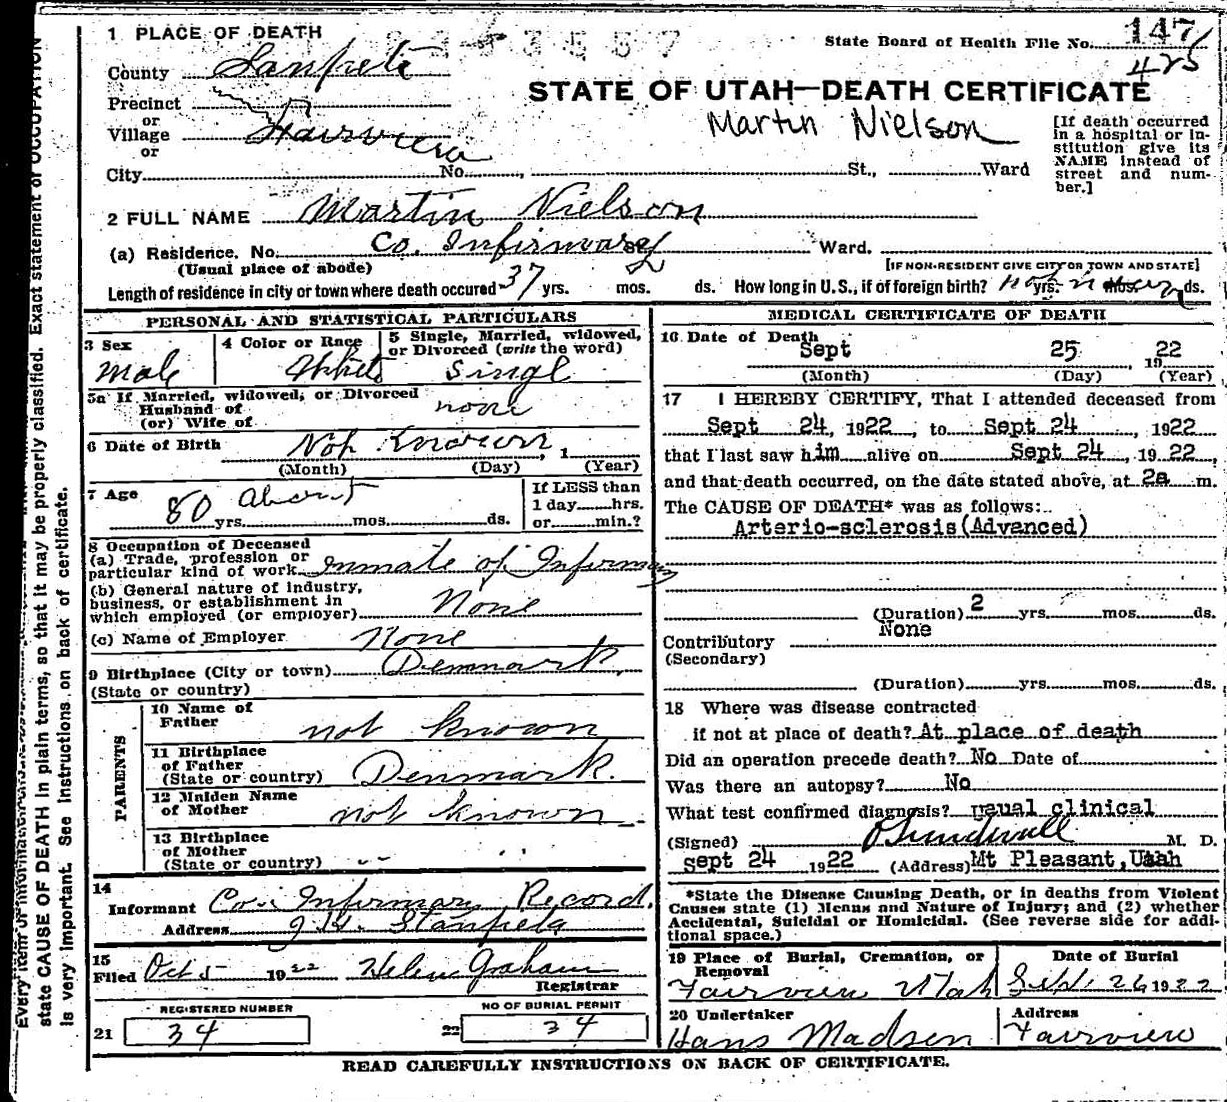 1 PLACE OF DEATH
State Board of Health File No. 147
425
County Sanpete
STATE OF UTAH—DEATH CERTIFICATE
Precinct
or
Village Fairview
or
City No. St., Ward
Martin Nielson
[If death occurred in a hospital or institution give its NAME instead of street and number.]
2 FULL NAME Martin Nielson
(a) Residence. No. Co. Infirmary St. Ward.
(Usual place of abode)
[IF NON-RESIDENT GIVE CITY OR TOWN AND STATE]
Length of residence in city or town where death occured 37 yrs. mos. ds. How long in U.S., if of foreign birth? not known yrs. mos. ds.
PERSONAL AND STATISTICAL PARTICULARS
3 Sex
Male
4 Color or Race
White
5 Single, Married, widowed, or Divorced (write the word)
Singl
5a If Married, widowed, or Divorced
Husband of
(or) Wife of
none
6 Date of Birth Not Known, 1
(Month) (Day) (Year)
7 Age
80 About
yrs. mos. ds.
If LESS than
1 day hrs.
or min.?
8 Occupation of Deceased
(a) Trade, profession or
particular kind of work Inmate of Infirmary
(b) General nature of industry,
business, or establishment in
which employed (or employer) None
(c) Name of Employer None
9 Birthplace (City or town) Denmark
(State or country)
PARENTS
10 Name of Father
not known
11 Birthplace of Father
(State or country) Denmark.
12 Maiden Name of Mother not known
13 Birthplace of Mother
(State or country) -- --
14
Informant Co. Infirmary Record.
Address
15
Filed Oct 5 1922 Helen Graham
Registrar
REGISTERED NUMBER
21 34
NO OF BURIAL PERMIT
22 34
MEDICAL CERTIFICATE OF DEATH
16 Date of Death
Sept 25 1922
(Month) (Day) (Year)
17 I HEREBY CERTIFY, That I attended deceased from
Sept 24, 1922, to Sept 24, 1922
that I last saw him alive on Sept 24, 1922,
and that death occurred, on the date stated above, at 2a m.
The CAUSE OF DEATH* was as follows:
Arterio-sclerosis(Advanced)
(Duration) 2 yrs. mos. ds.
Contributory None
(Secondary)
(Duration) yrs. mos. ds.
18 Where was disease contracted
if not at place of death? At place of death
Did an operation precede death? No Date of
Was there an autopsy? No
What test confirmed diagnosis? usual clinical
(Signed) M. D.
sept 24 1922 (Address) Mt Pleasant, Utah
*State the Disease Causing Death, or in deaths from Violent
Causes state (1) Menus and Nature of Injury; and (2) whether
Accidental, Suicidal or Homicidal. (See reverse side for addi-
tional space.)
19 Place of Burial, Cremation, or Removal
Fairview Utah
Date of Burial
Sept. 26 1922
20 Undertaker
Hans Madsen
Address
Fairview
READ CAREFULLY INSTRUCTIONS ON BACK OF CERTIFICATE.
state CAUSE OF DEATH in plain terms, so that it may be properly classified. Exact statement of OCCUPATION
is very important. See instructions on back of certificate.